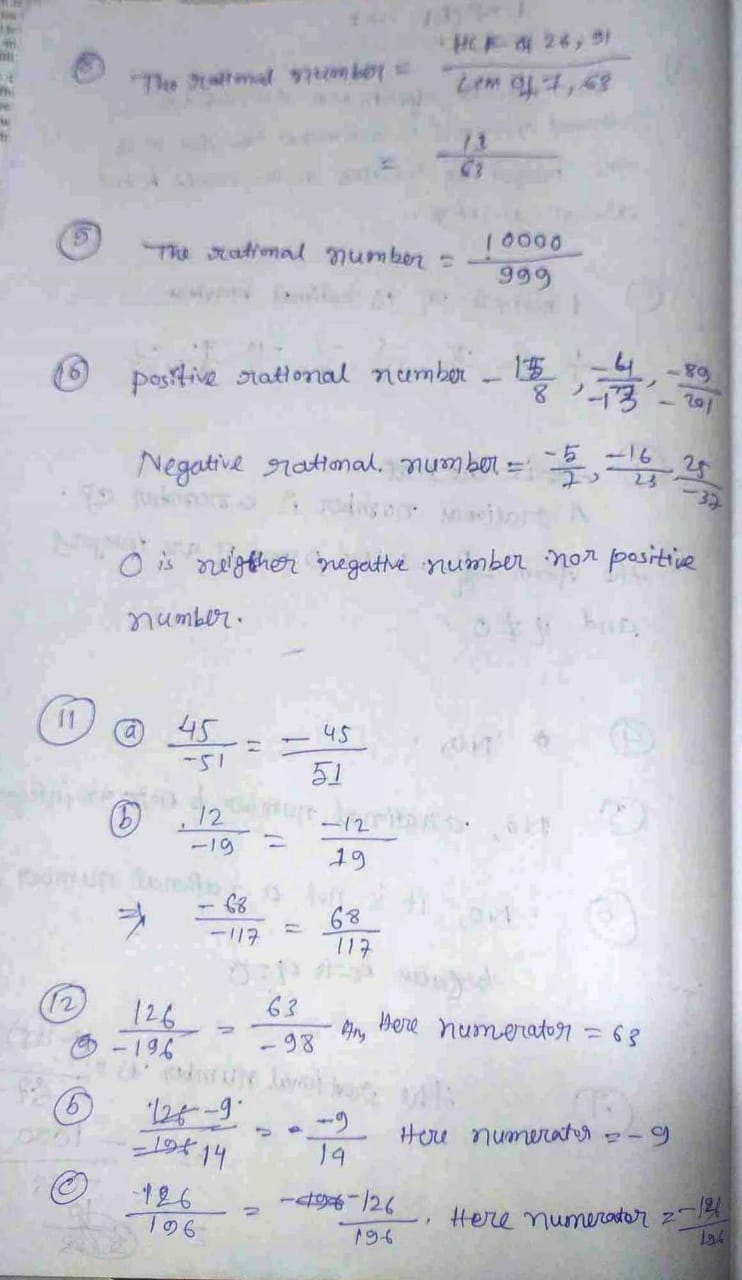 ⑧ The rational number = HCF of 26, 91 / LCM of 7, 63
= 13 / 63
⑤ The rational number = 10000 / 999
⑩ positive rational number - 15/8, -4/-13, -89/-201
Negative rational. number = -5/7, -16/23, 25/-37
0 is neigther negative number nor positive
number.
⑪ ⓐ 45/-51 = -45/51
ⓑ 12/-19 = -12/19
⇒ -68/-117 = 68/117
⑫ ⓐ 126/-196 = 63/-98 Ans Here numerator = 63
ⓑ -9/14 = -9/14 Here numerator = -9
ⓒ -126/196 = -126/196. Here numerator = -126/196